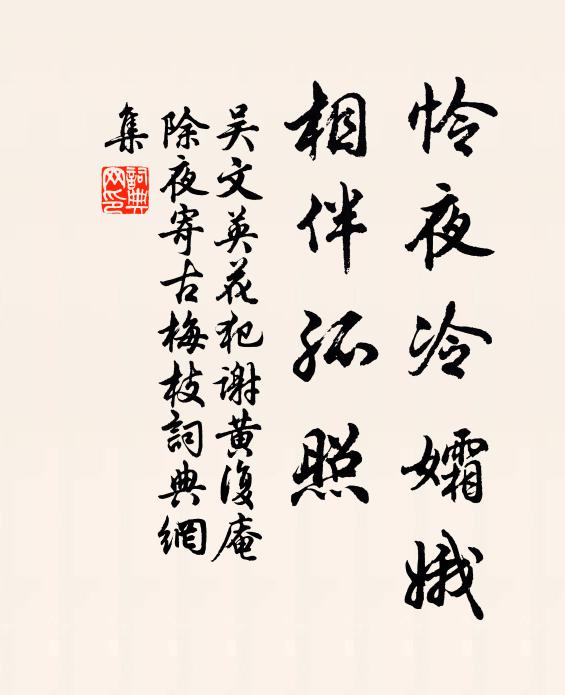 怜夜冷孀娥
相伴孤照
吴文英花犯谢黄復庵
除夜寄古梅枝詞典網
集
詞典
网印